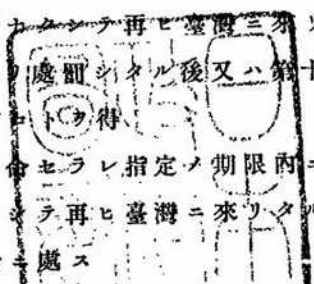 シテ再ヒ臺灣ニ來リ
處罰シタル後又ハ第十
コトヲ得
命セラレ指定ノ期限內ニ
シテ再ヒ臺灣ニ來リタル
ニ處ス